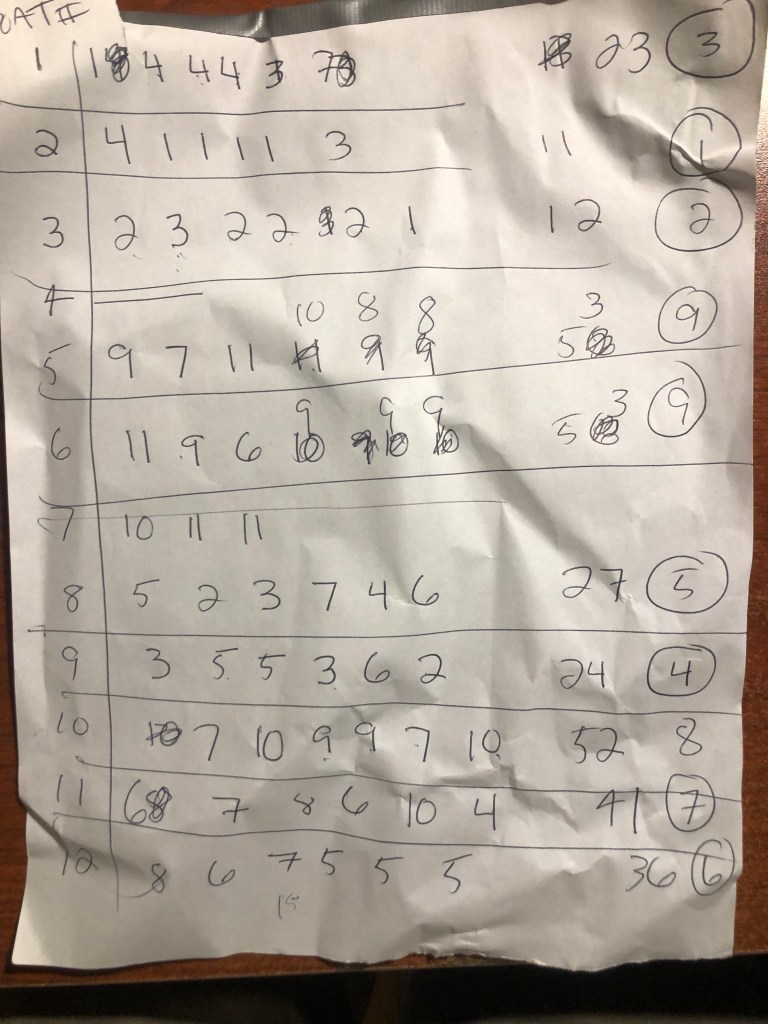 OAT#
1 1 4 4 4 3 7 23 3
2 4 1 1 1 1 3 11 1
3 2 3 2 2 2 1 12 2
4
10 8 8 3 9
5 9 7 11 5
9 9 9 3 9
6 11 9 6 5
7 10 11 11
8 5 2 3 7 4 6 27 5
9 3 5 5 3 6 2 24 4
10 7 10 9 9 7 10 52 8
11 6 7 8 6 10 4 41 7
12 8 6 7 5 5 5 36 6
15